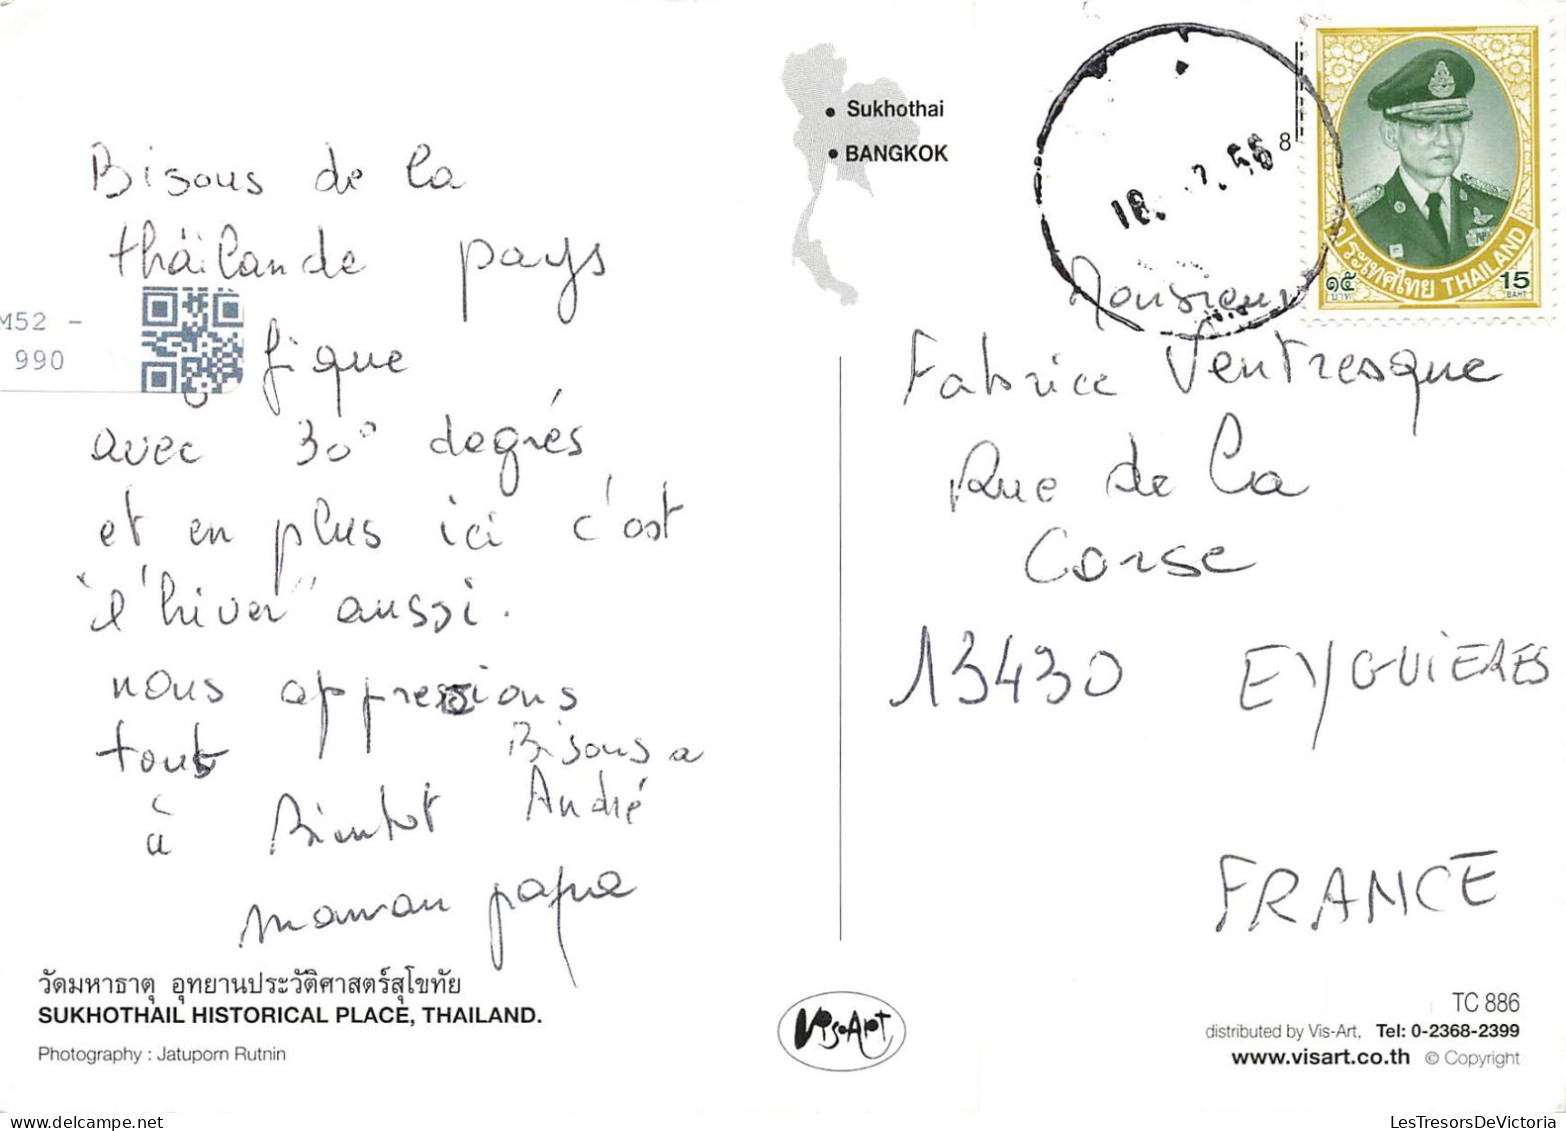 Bisous de la
thaïlande pays
fique
avec 30° degrés
et en plus ici c'est
"l'hiver" aussi.
nous appresions
tout
Bisous a
André
à Bientot
maman papa
วัดมหาธาตุ อุทยานประวัติศาสตร์สุโขทัย
SUKHOTHAIL HISTORICAL PLACE, THAILAND.
Photography : Jatuporn Rutnin
M52 -
990
• Sukhothai
• BANGKOK
8
ประเทศไทย THAILAND
๑๕ บาท
15 BAHT
Monsieur
Fabrice Ventresque
Rue de la
Corse
13430 EYGUIÈRES
FRANCE
Vis-Art
TC 886
distributed by Vis-Art, Tel: 0-2368-2399
www.visart.co.th © Copyright
LesTresorsDeVictoria